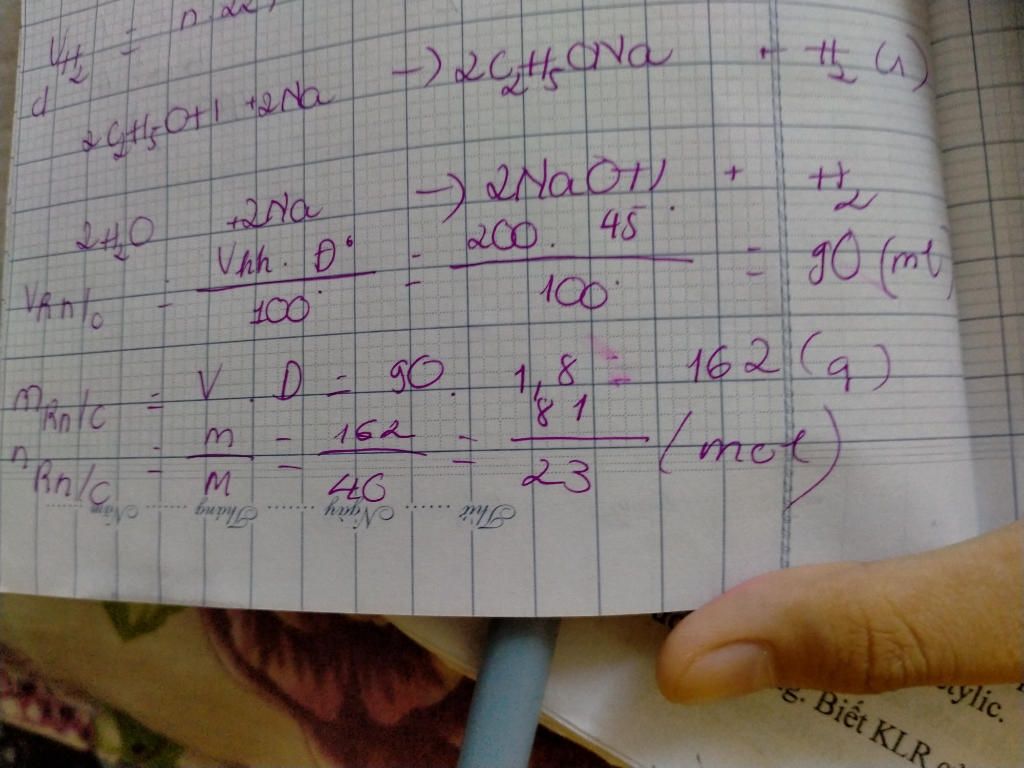 V_H₂ = n 22,
d
2C₂H₅OH +2Na → 2C₂H₅ONa + H₂ (1)
2H₂O +2Na → 2NaOH + H₂
V_Rn/c = Vhh . Đ° / 100 = 200 . 45 / 100 = 90 (ml)
m_Rn/c = V . D = 90 . 1,8 = 162 (g)
n_Rn/c = m / M = 162 / 46 = 81 / 23 (mol)
Thứ ...... Ngày ...... Tháng ...... Năm ......
tylic.
g. Biết KLR